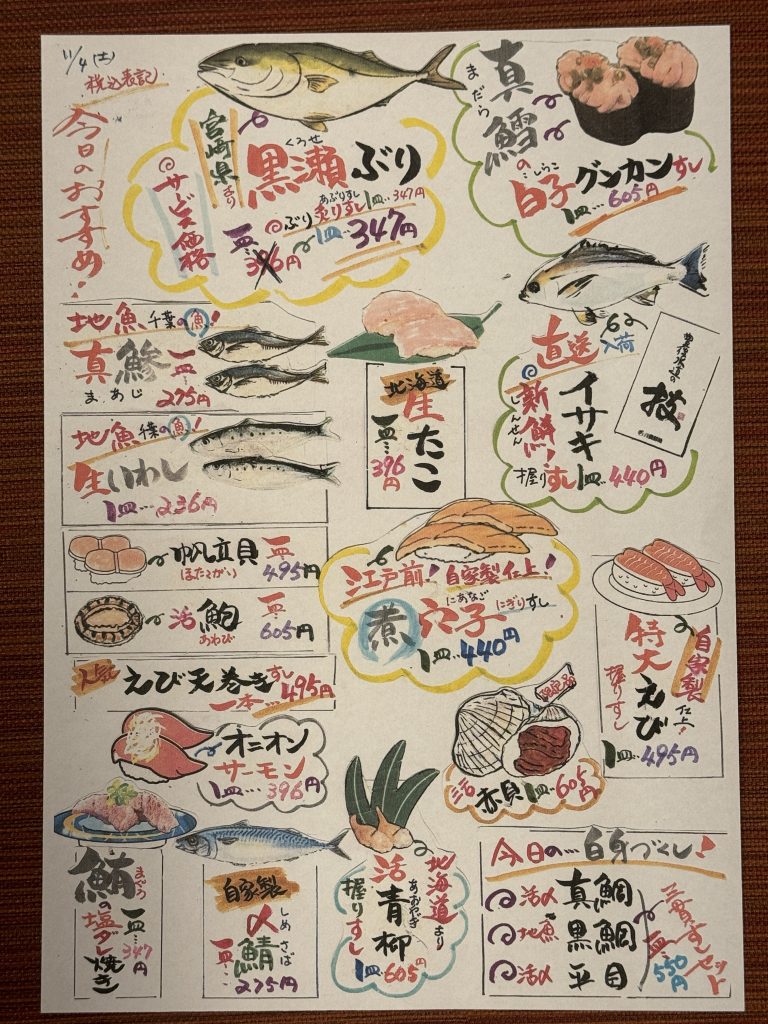 11/4(土)
税込表記
今日のおすすめ!
宮崎県より
くろせ
黒瀬ぶり
サービス価格
あぶりすし
ぶり炙りすし1皿…347円
一皿…396円
1皿…347円
まだら
真鱈の
しらこ
白子グンカンすし
1皿…605円
地魚千葉の魚!
真鯵
まあじ
一皿…275円
地魚千葉の魚!
生いわし
1皿…236円
北海道
生たこ
一皿…396円
直送
入荷
新鮮!
しんせん
イサキ
握りすし1皿…440円
豊後水道の
技
帆立貝
ほたてがい
一皿…495円
活鮑
あわび
一皿…605円
えび天巻きすし
一本…495円
江戸前!自家製仕上!
にあなご
煮穴子にぎりすし
1皿…440円
自家製仕上!
特大えび
握りすし
1皿…495円
オニオン
サーモン
1皿…396円
限定品
活赤貝1皿…605円
まぐろ
鮪の塩ダレ焼き
一皿…347円
自家製
しめさば
〆鯖
一皿…275円
北海道より
あおやぎ
活青柳
握りすし
1皿…605円
今日の…白身づくし!
活〆真鯛
地魚黒鯛
活〆平目
三貫すしセット
一皿…550円